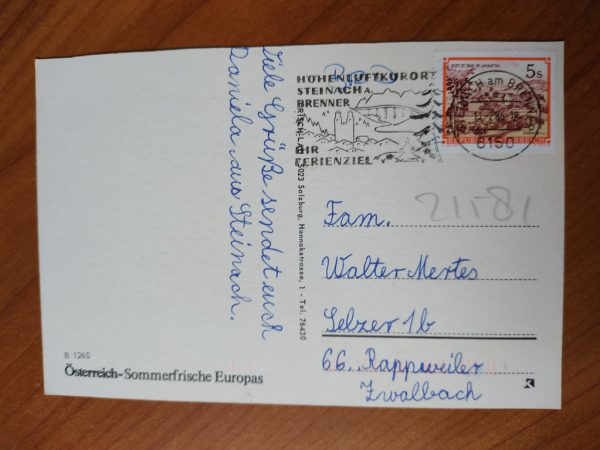 Viele Grüße sendet euch
Daniela aus Steinach.
B 1260
Österreich-Sommerfrische Europas
HÖHENLUFTKURORT
STEINACH A.
BRENNER
IHR
FERIENZIEL
5023 Salzburg, Hannakstrasse, 1 - Tel. 76430
STIFT ST. PAUL IM LAVANTTAL
5s
REPUBLIK ÖSTERREICH
6150
Fam.
Walter Mertes
Selzer 1b
66. Rappweiler
Zwalbach